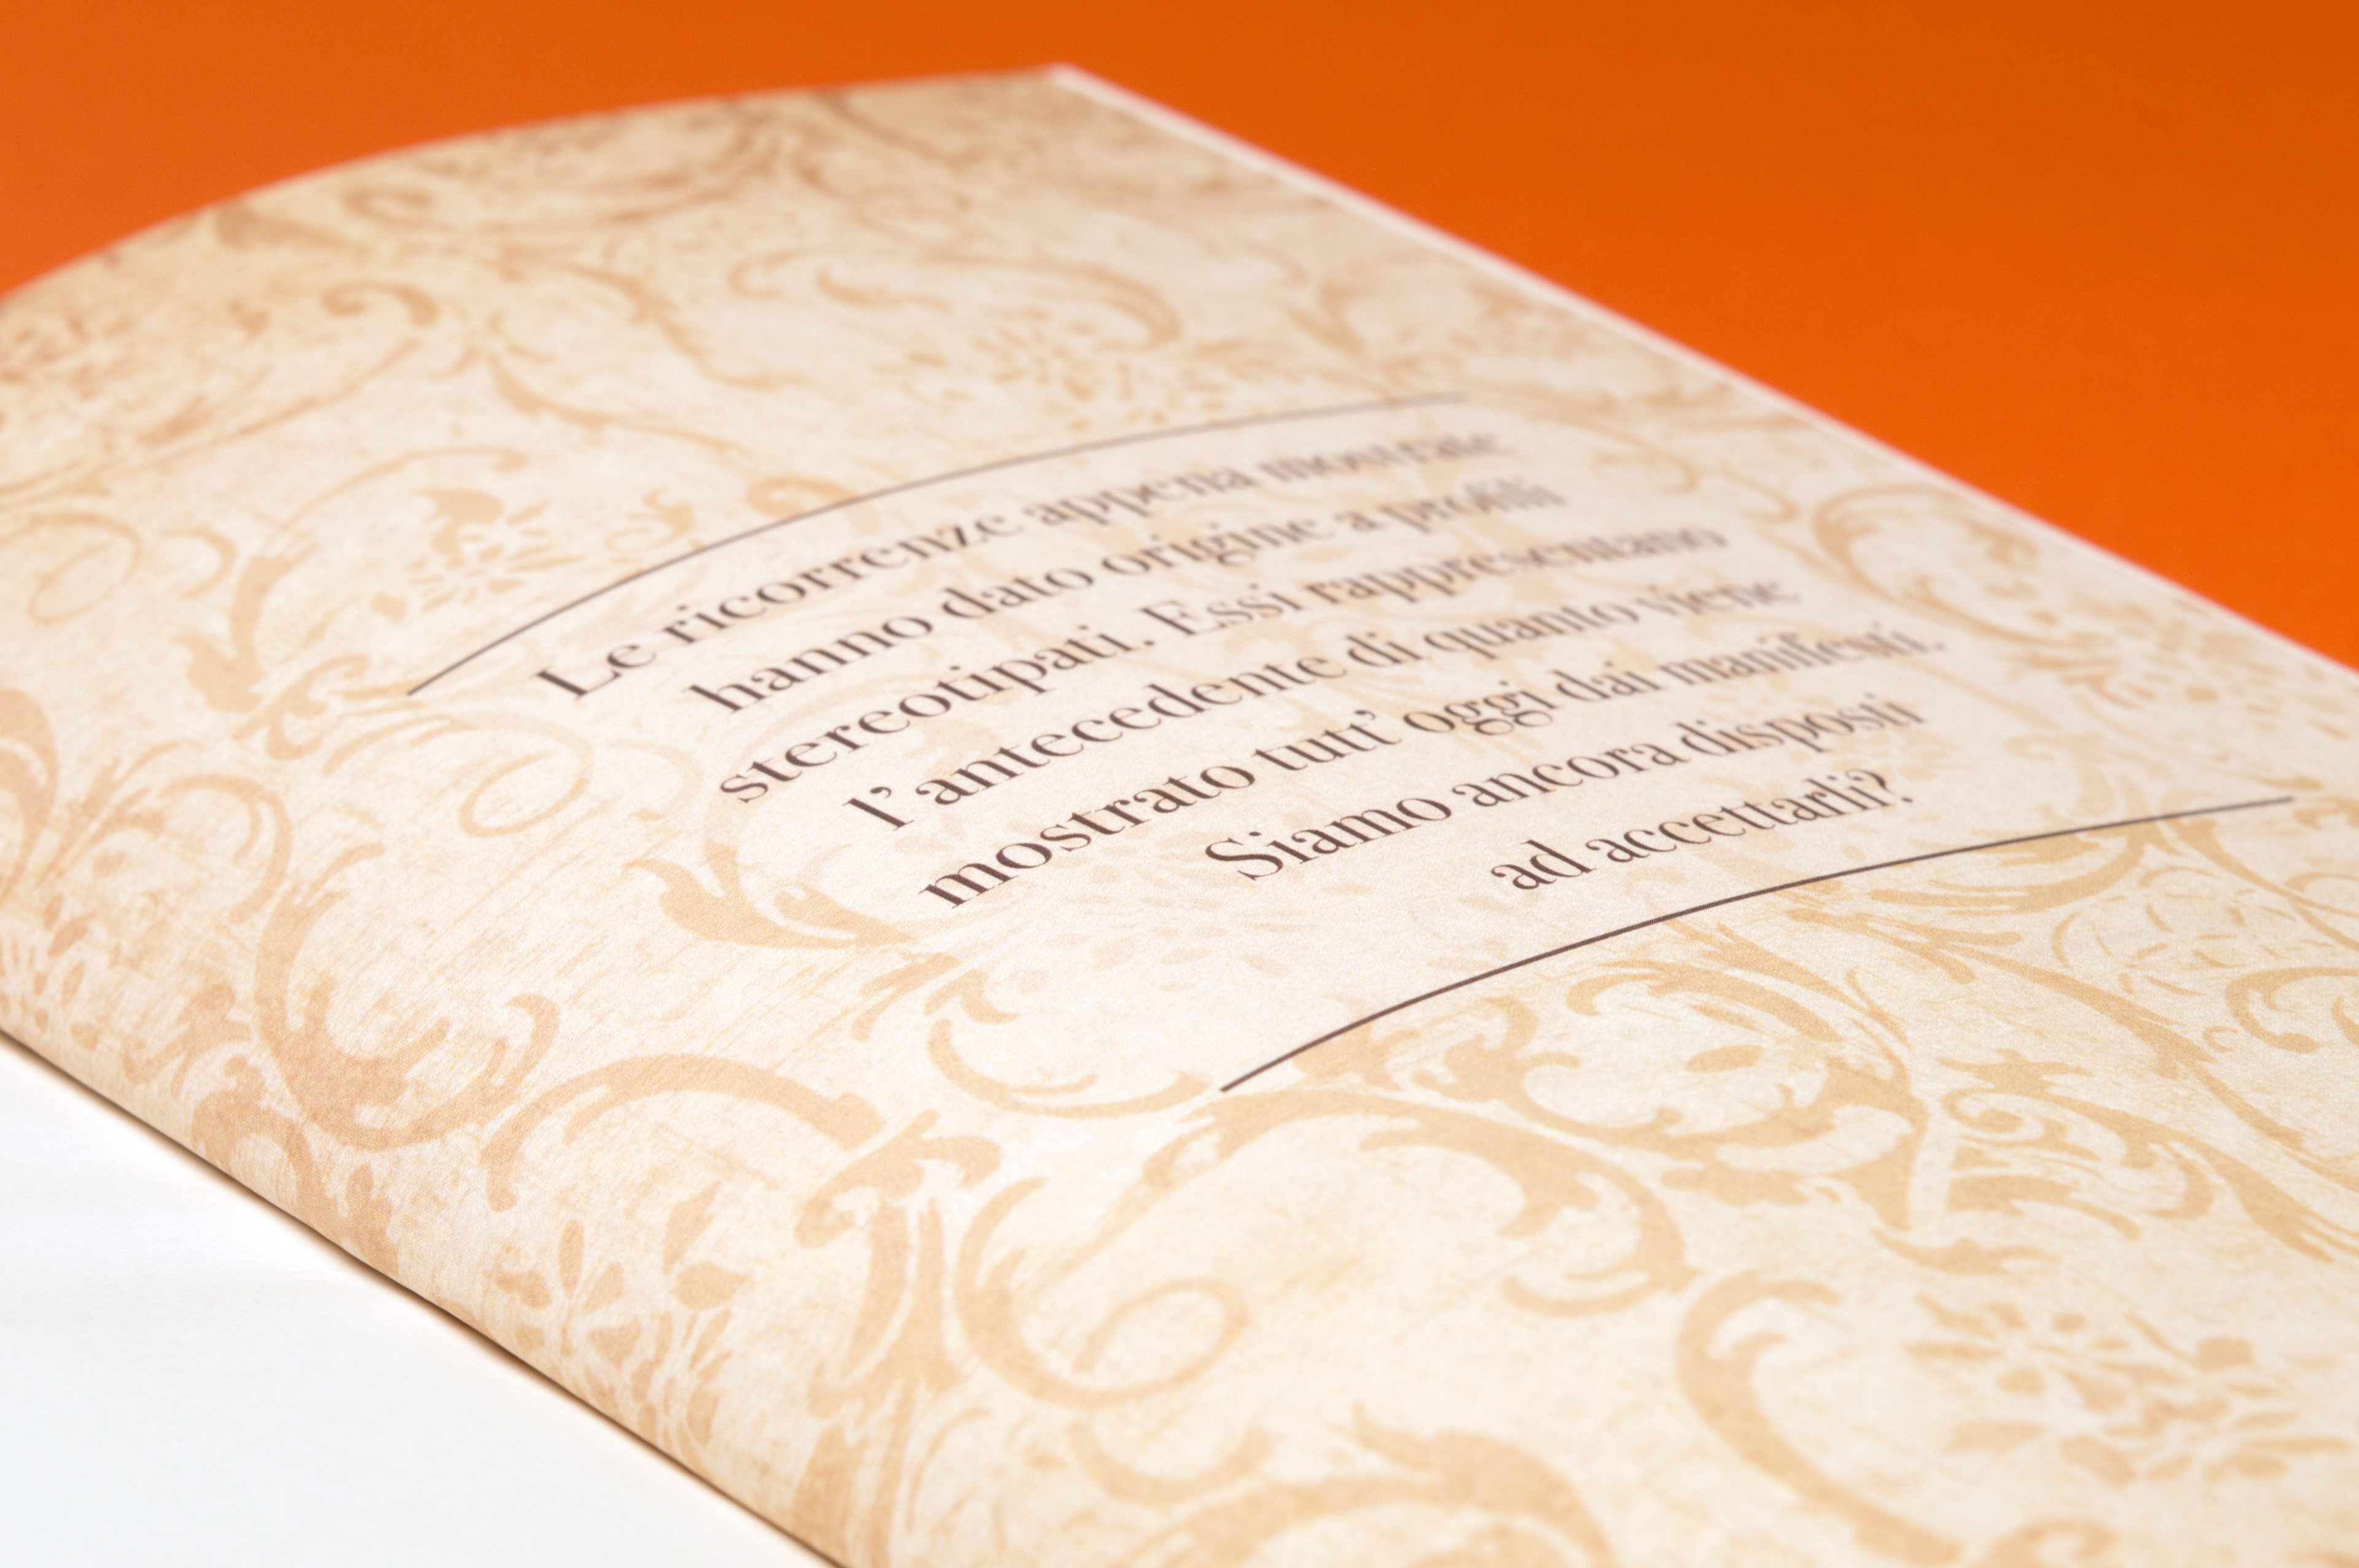 Le ricorrenze appena mostrate
hanno dato origine a profili
stereotipati. Essi rappresentano
l' antecedente di quanto viene
mostrato tutt' oggi dai manifesti.
Siamo ancora disposti
ad accettarli?.